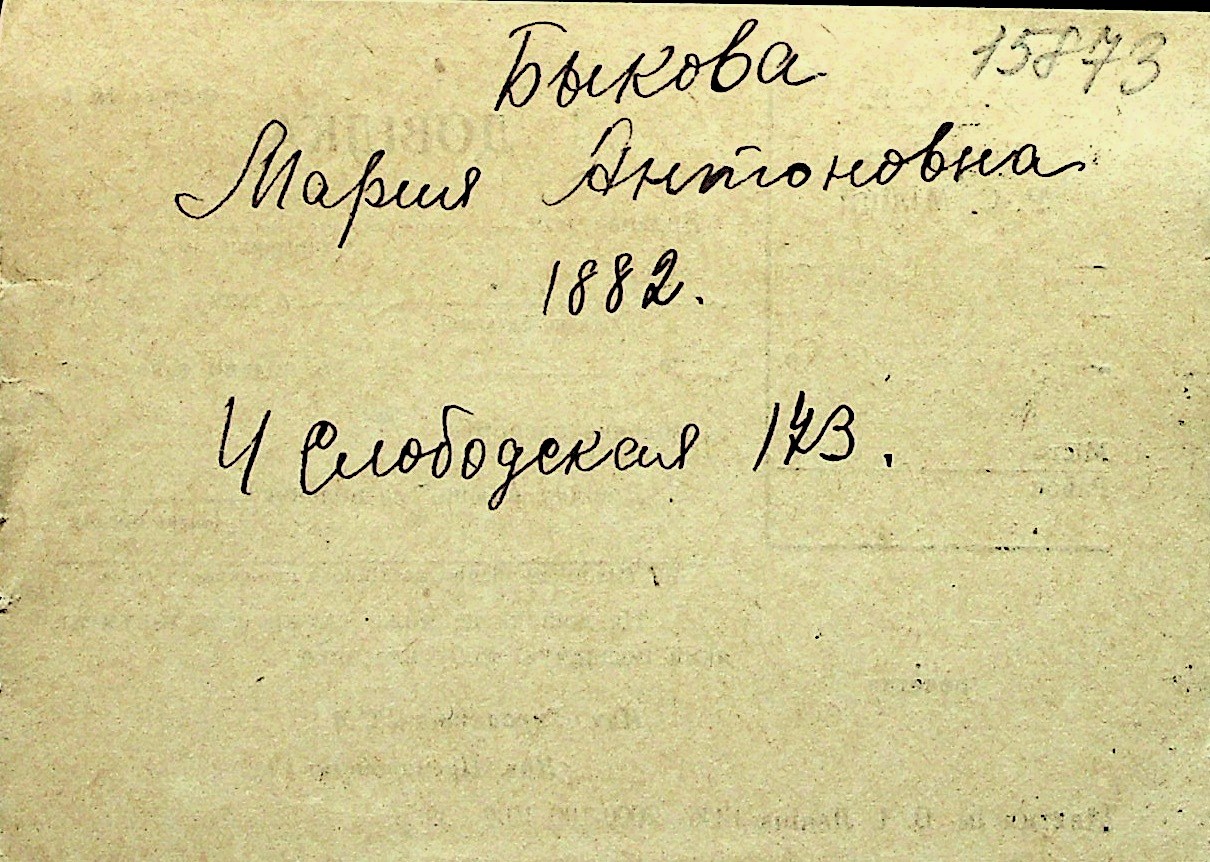 Быкова 15873
Мария Антоновна
1882.
4 Слободская 173.